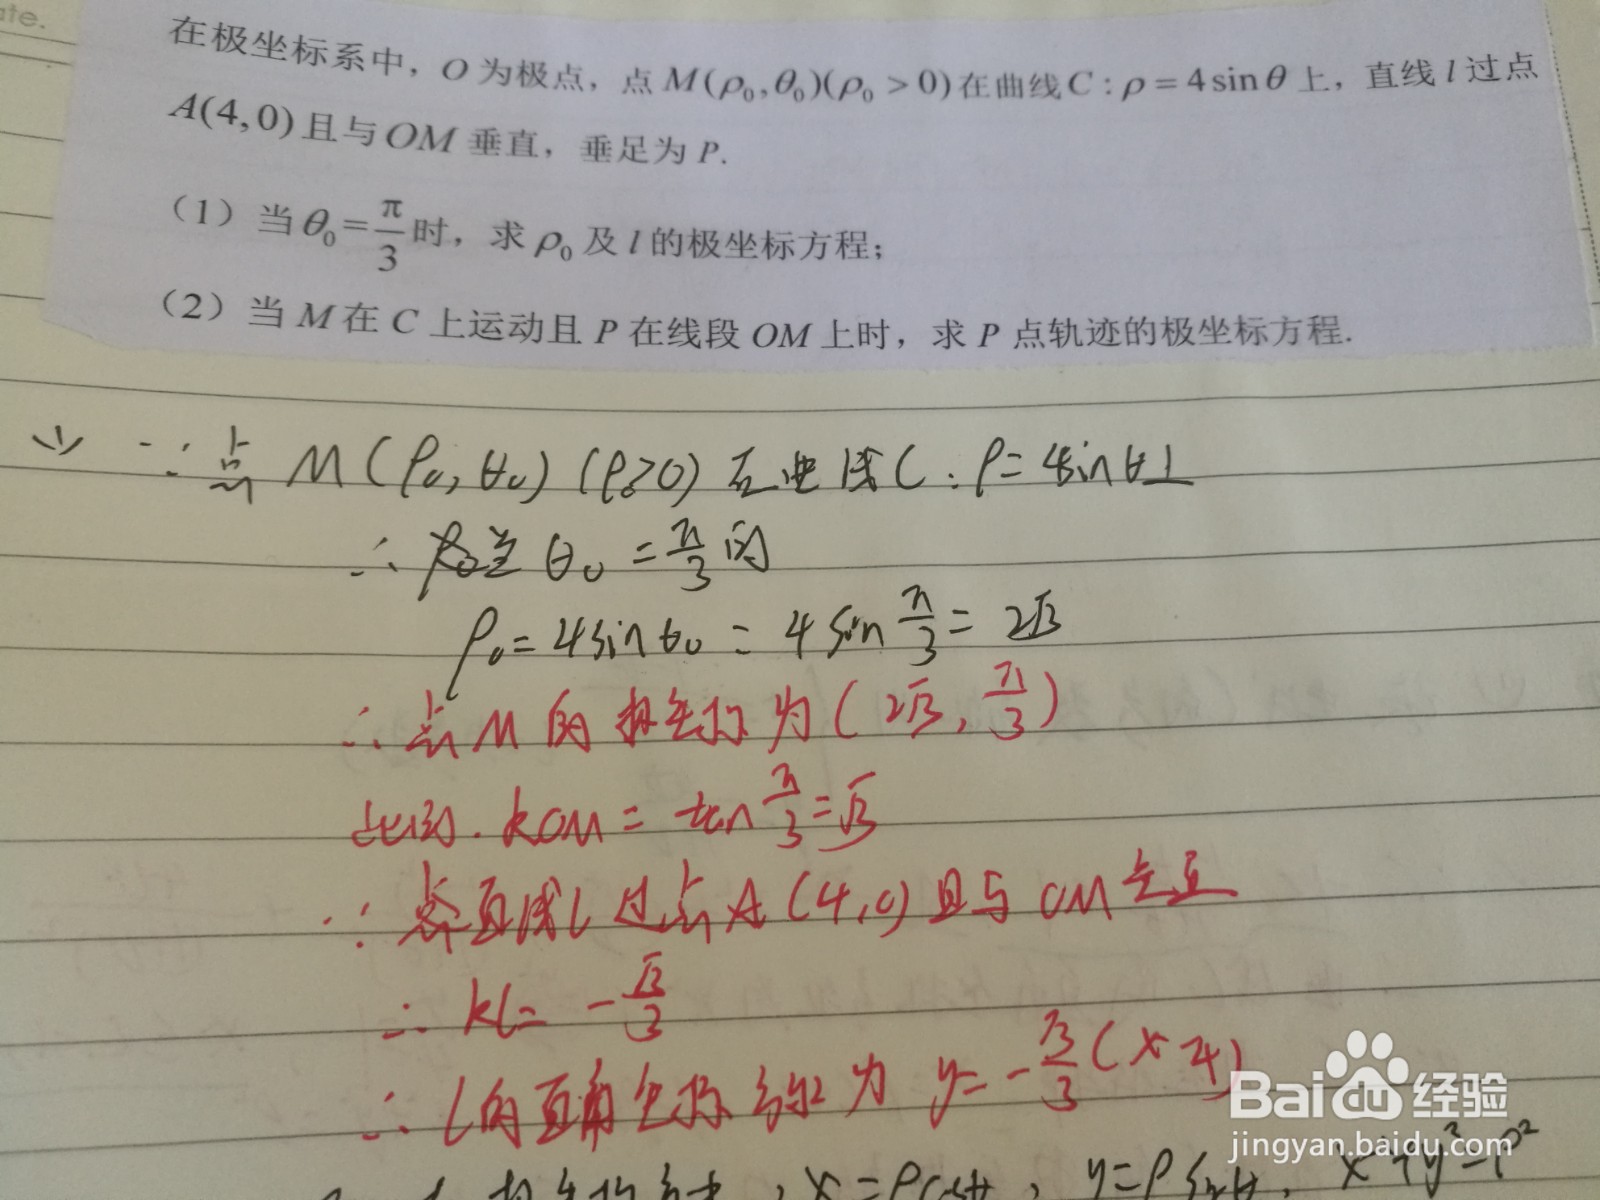 ate.
在极坐标系中，O为极点，点M(ρ₀,θ₀)(ρ₀>0)在曲线C:ρ=4sinθ上，直线l过点
A(4,0)且与OM垂直，垂足为P.
（1）当θ₀=π/3时，求ρ₀及l的极坐标方程；
（2）当M在C上运动且P在线段OM上时，求P点轨迹的极坐标方程.
(1) ∵点M(ρ₀,θ₀)(ρ₀>0)在曲线C:ρ=4sinθ上
∴当θ₀=π/3时
ρ₀=4sinθ₀=4sinπ/3=2√3
∴点M的极坐标为(2√3,π/3)
此时.kOM=tanπ/3=√3
∵直线l过点A(4,0)且与OM垂直
∴kl=-√3/3
∴l的直角坐标方程为y=-√3/3(x-4)
x=ρcosθ, y=ρsinθ, x²+y²=ρ²
Baidu经验
jingyan.baidu.com